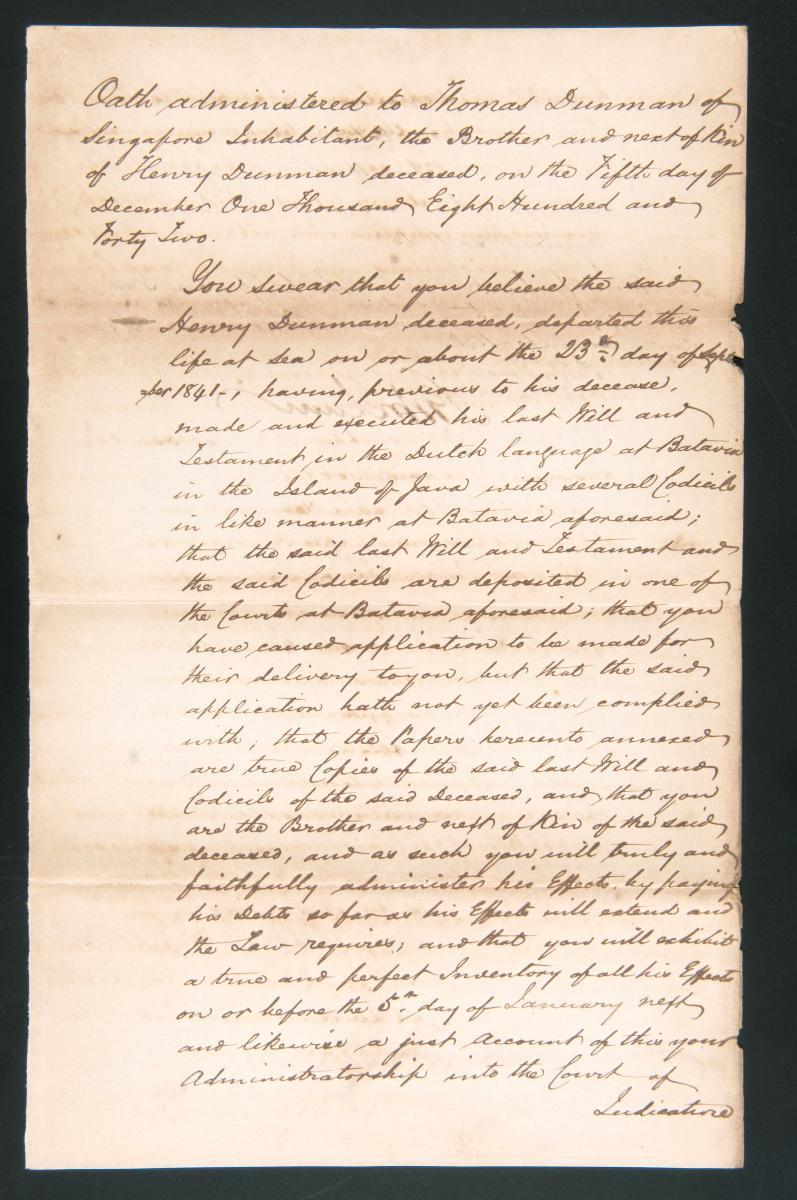 Oath administered to Thomas Dunman of
Singapore Inhabitant, the Brother and next of Kin
of Henry Dunman deceased, on the Fifth day of
December One Thousand Eight Hundred and
Forty Two.
You swear that you believe the said
Henry Dunman deceased, departed this
life at sea on or about the 23rd day of Sept
-ber 1841-, having, previous to his decease,
made and executed his last Will and
Testament in the Dutch language at Batavia
in the Island of Java with several Codicils
in like manner at Batavia aforesaid;
that the said last Will and Testament and
the said Codicils are deposited in one of
the Courts at Batavia aforesaid; that you
have caused application to be made for
their delivery to you, but that the said
application hath not yet been complied
with; that the Papers hereunto annexed
are true Copies of the said last Will and
Codicils of the said Deceased, and that you
are the Brother and next of Kin of the said
deceased, and as such you will truly and
faithfully administer his Effects, by paying
his Debts so far as his Effects will extend and
the Law requires; and that you will exhibit
a true and perfect Inventory of all his Effects
on or before the 5th day of January next
and likewise a just Account of this your
Administratorship into the Court of
Judicature